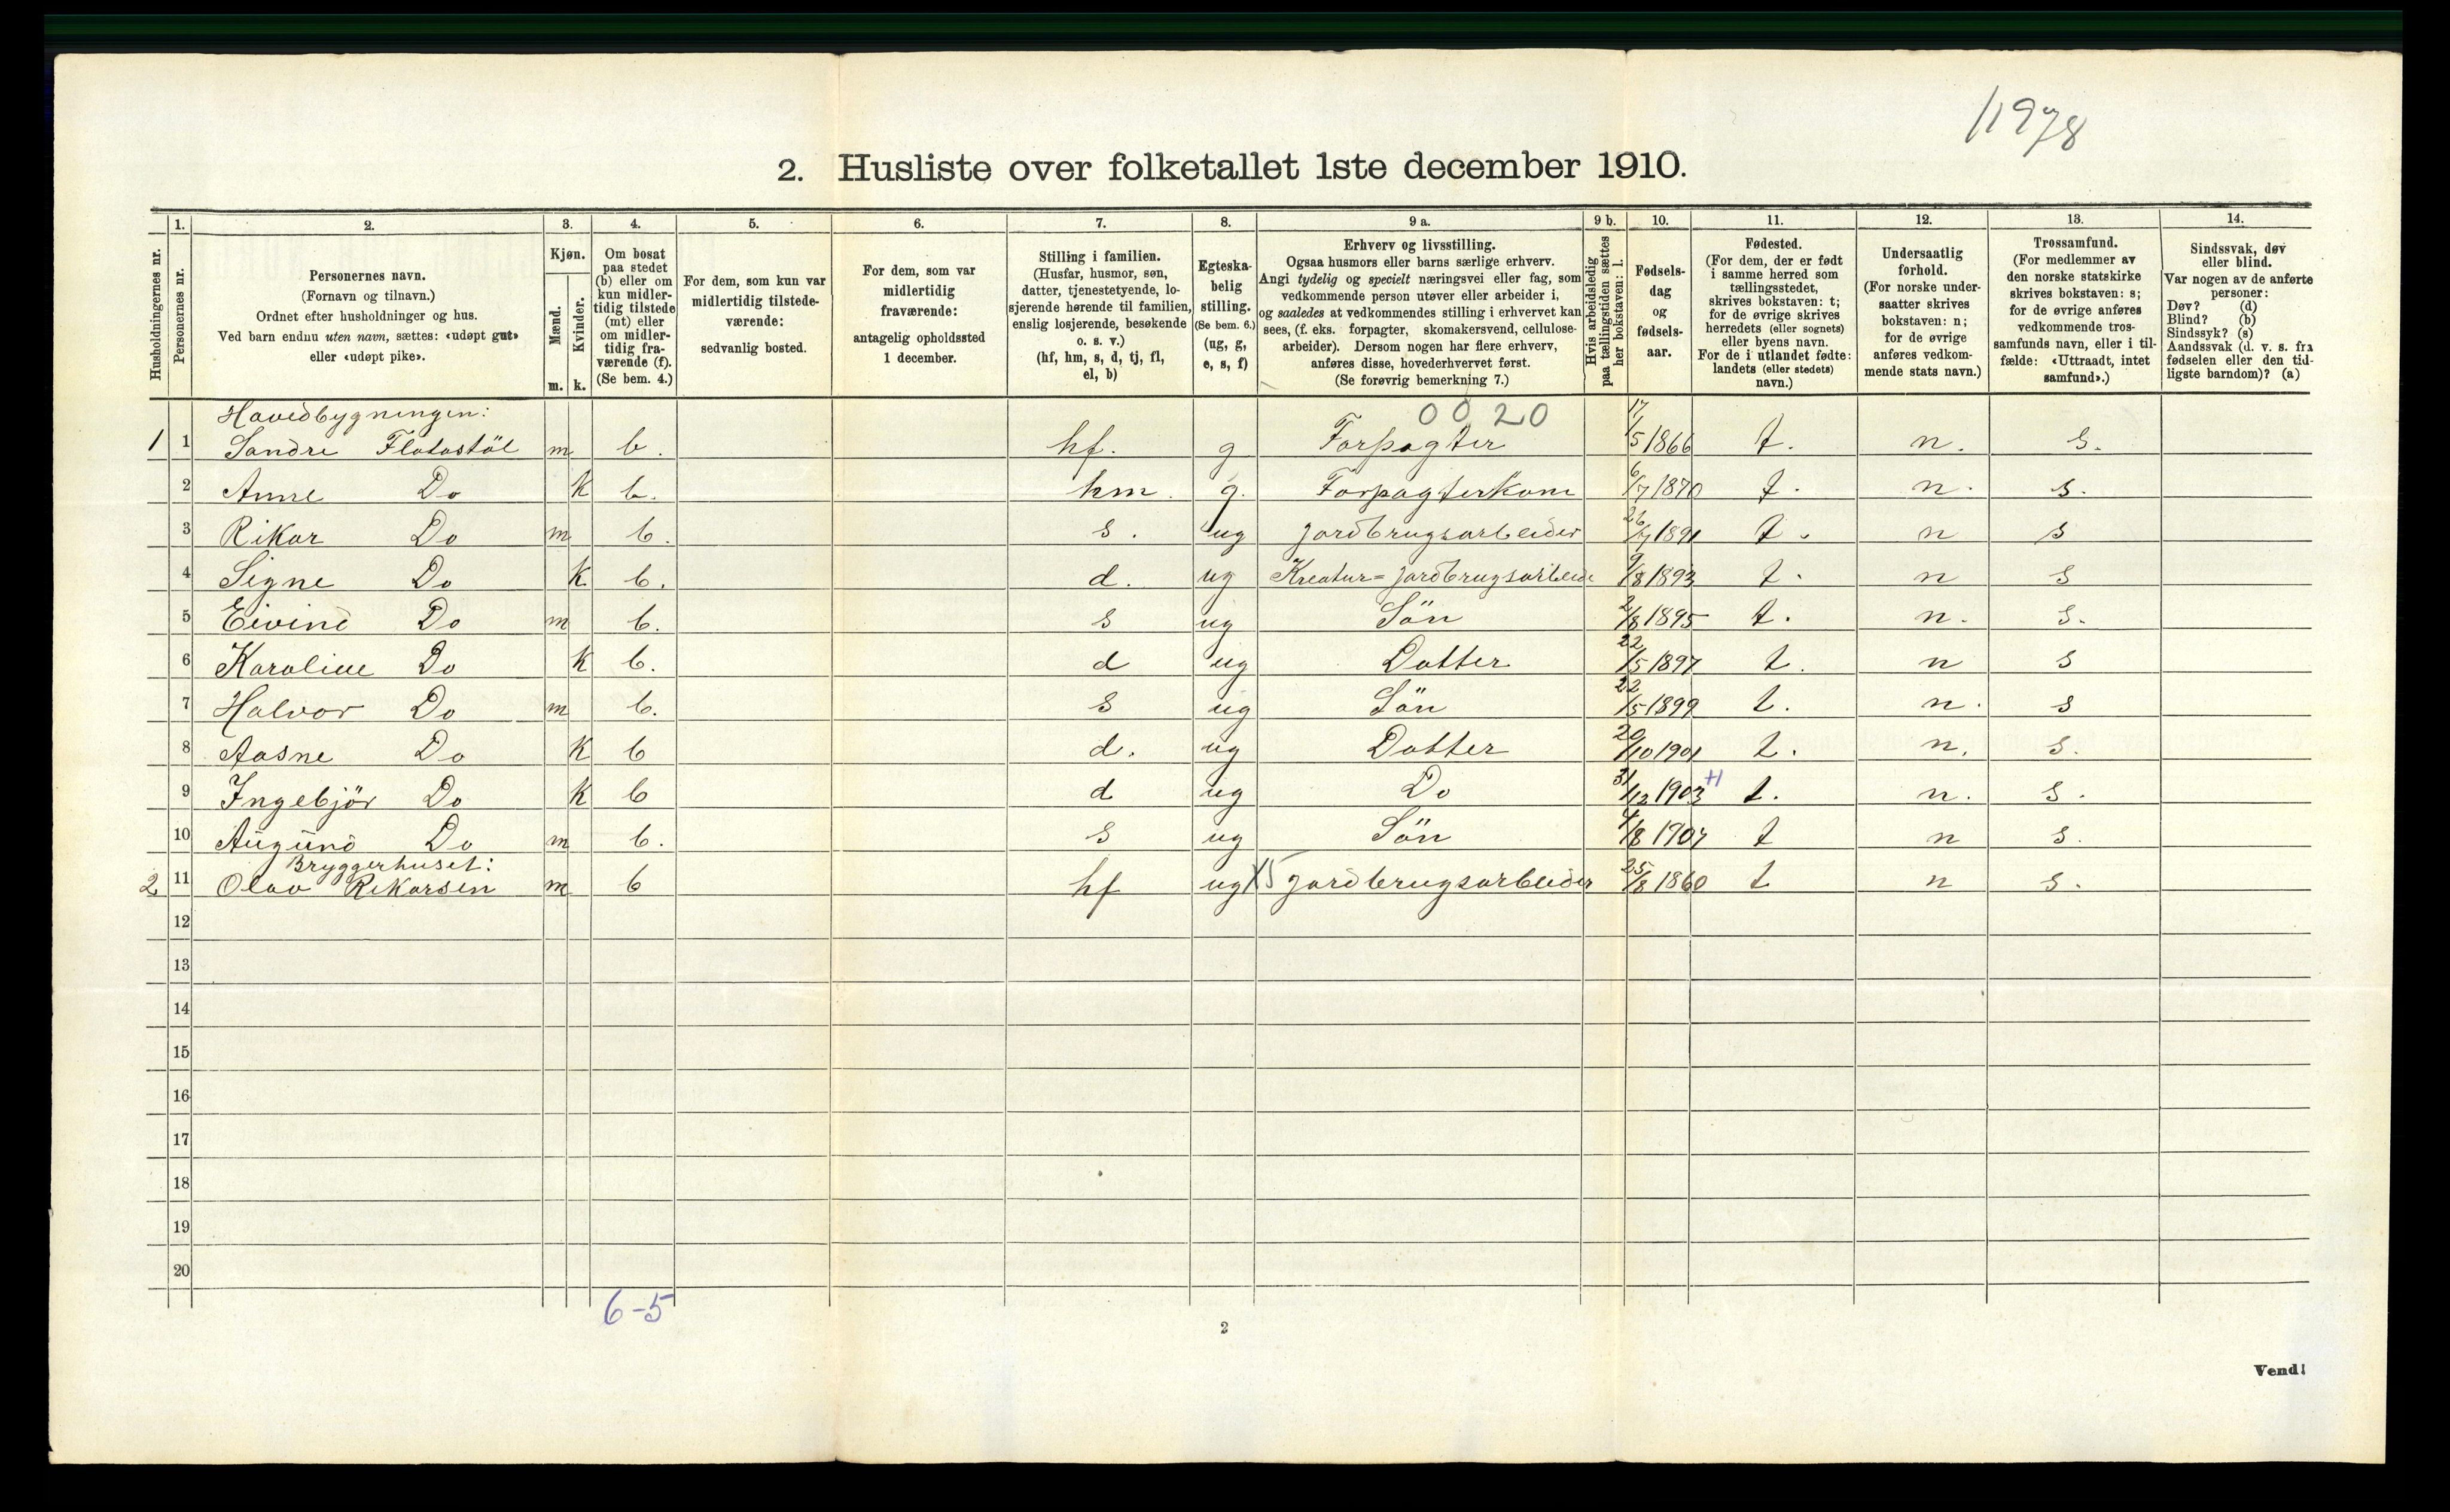 11978
2. Husliste over folketallet 1ste december 1910.
Husholdningernes nr.
1.
Personernes nr.
2.
Personernes navn.
(Fornavn og tilnavn.)
Ordnet efter husholdninger og hus.
Ved barn endnu uten navn, sættes: «udøpt gut»
eller «udøpt pike».
3.
Kjøn.
Mænd.
Kvinder.
m. k.
4.
Om bosat
paa stedet
(b) eller om
kun midler-
tidig tilstede
(mt) eller
om midler-
tidig fra-
værende (f).
(Se bem. 4.)
5.
For dem, som kun var
midlertidig tilstede-
værende:
sedvanlig bosted.
6.
For dem, som var
midlertidig
fraværende:
antagelig opholdssted
1 december.
7.
Stilling i familien.
(Husfar, husmor, søn,
datter, tjenestetyende, lo-
sjerende hørende til familien,
enslig losjerende, besøkende
o. s. v.)
(hf, hm, s, d, tj, fl,
el, b)
8.
Egteska-
belig
stilling.
(Se bem. 6.)
(ug, g,
e, s, f)
9 a.
Erhverv og livsstilling.
Ogsaa husmors eller barns særlige erhverv.
Angi tydelig og specielt næringsvei eller fag, som
vedkommende person utøver eller arbeider i,
og saaledes at vedkommendes stilling i erhvervet kan
sees, (f. eks. forpagter, skomakersvend, cellulose-
arbeider). Dersom nogen har flere erhverv,
anføres disse, hovederhvervet først.
(Se forøvrig bemerkning 7.)
9 b.
Hvis arbeidsledig
paa tællingstiden sættes
her bokstaven: l.
10.
Fødsels-
dag
og
fødsels-
aar.
11.
Fødested.
(For dem, der er født
i samme herred som
tællingsstedet,
skrives bokstaven: t;
for de øvrige skrives
herredets (eller sognets)
eller byens navn.
For de i utlandet fødte:
landets (eller stedets)
navn.)
12.
Undersaatlig
forhold.
(For norske under-
saatter skrives
bokstaven: n;
for de øvrige
anføres vedkom-
mende stats navn.)
13.
Trossamfund.
(For medlemmer av
den norske statskirke
skrives bokstaven: s;
for de øvrige anføres
vedkommende tros-
samfunds navn, eller i til-
fælde: «Uttraadt, intet
samfund».)
14.
Sindssvak, døv
eller blind.
Var nogen av de anførte
personer:
Døv? (d)
Blind? (b)
Sindssyk? (s)
Aandssvak (d. v. s. fra
fødselen eller den tid-
ligste barndom)? (a)
Hovedbygningen: 0020
1 1 Sandre Flatastöl m b. hf. g Forpagter 17/5 1866 t. n. s.
2 Anne Do k b. hm. g. Forpagterkone 6/7 1870 t. n. s.
3 Rikar Do m b. s. ug jordbrugsarbeider 26/7 1891 t. n s
4 Signe Do k b. d. ug Kreatur= jordbrugsarbeide 9/8 1893 t. n s
5 Eivind Do m b. s ug Sön 2/8 1895 t. n. s.
6 Karoline Do k b. d ug Datter 22/5 1897 t. n s
7 Halvor Do m b. s ug Sön 22/5 1899 t. n. s
8 Aasne Do k b d. ug Datter 20/10 1901 t. n. s.
9 Ingebjör Do k b d ug Do 31/12 1903 +1 t. n. s.
10 Augund Do m b. s ug Sön 4/8 1907 t n s.
Bryggerhuset:
2 11 Olav Rikarsen m b hf ug X5 jordbrugsarbeider 25/8 1860 t n s.
12
13
14
15
16
17
18
19
20
6-5
2
Vend!